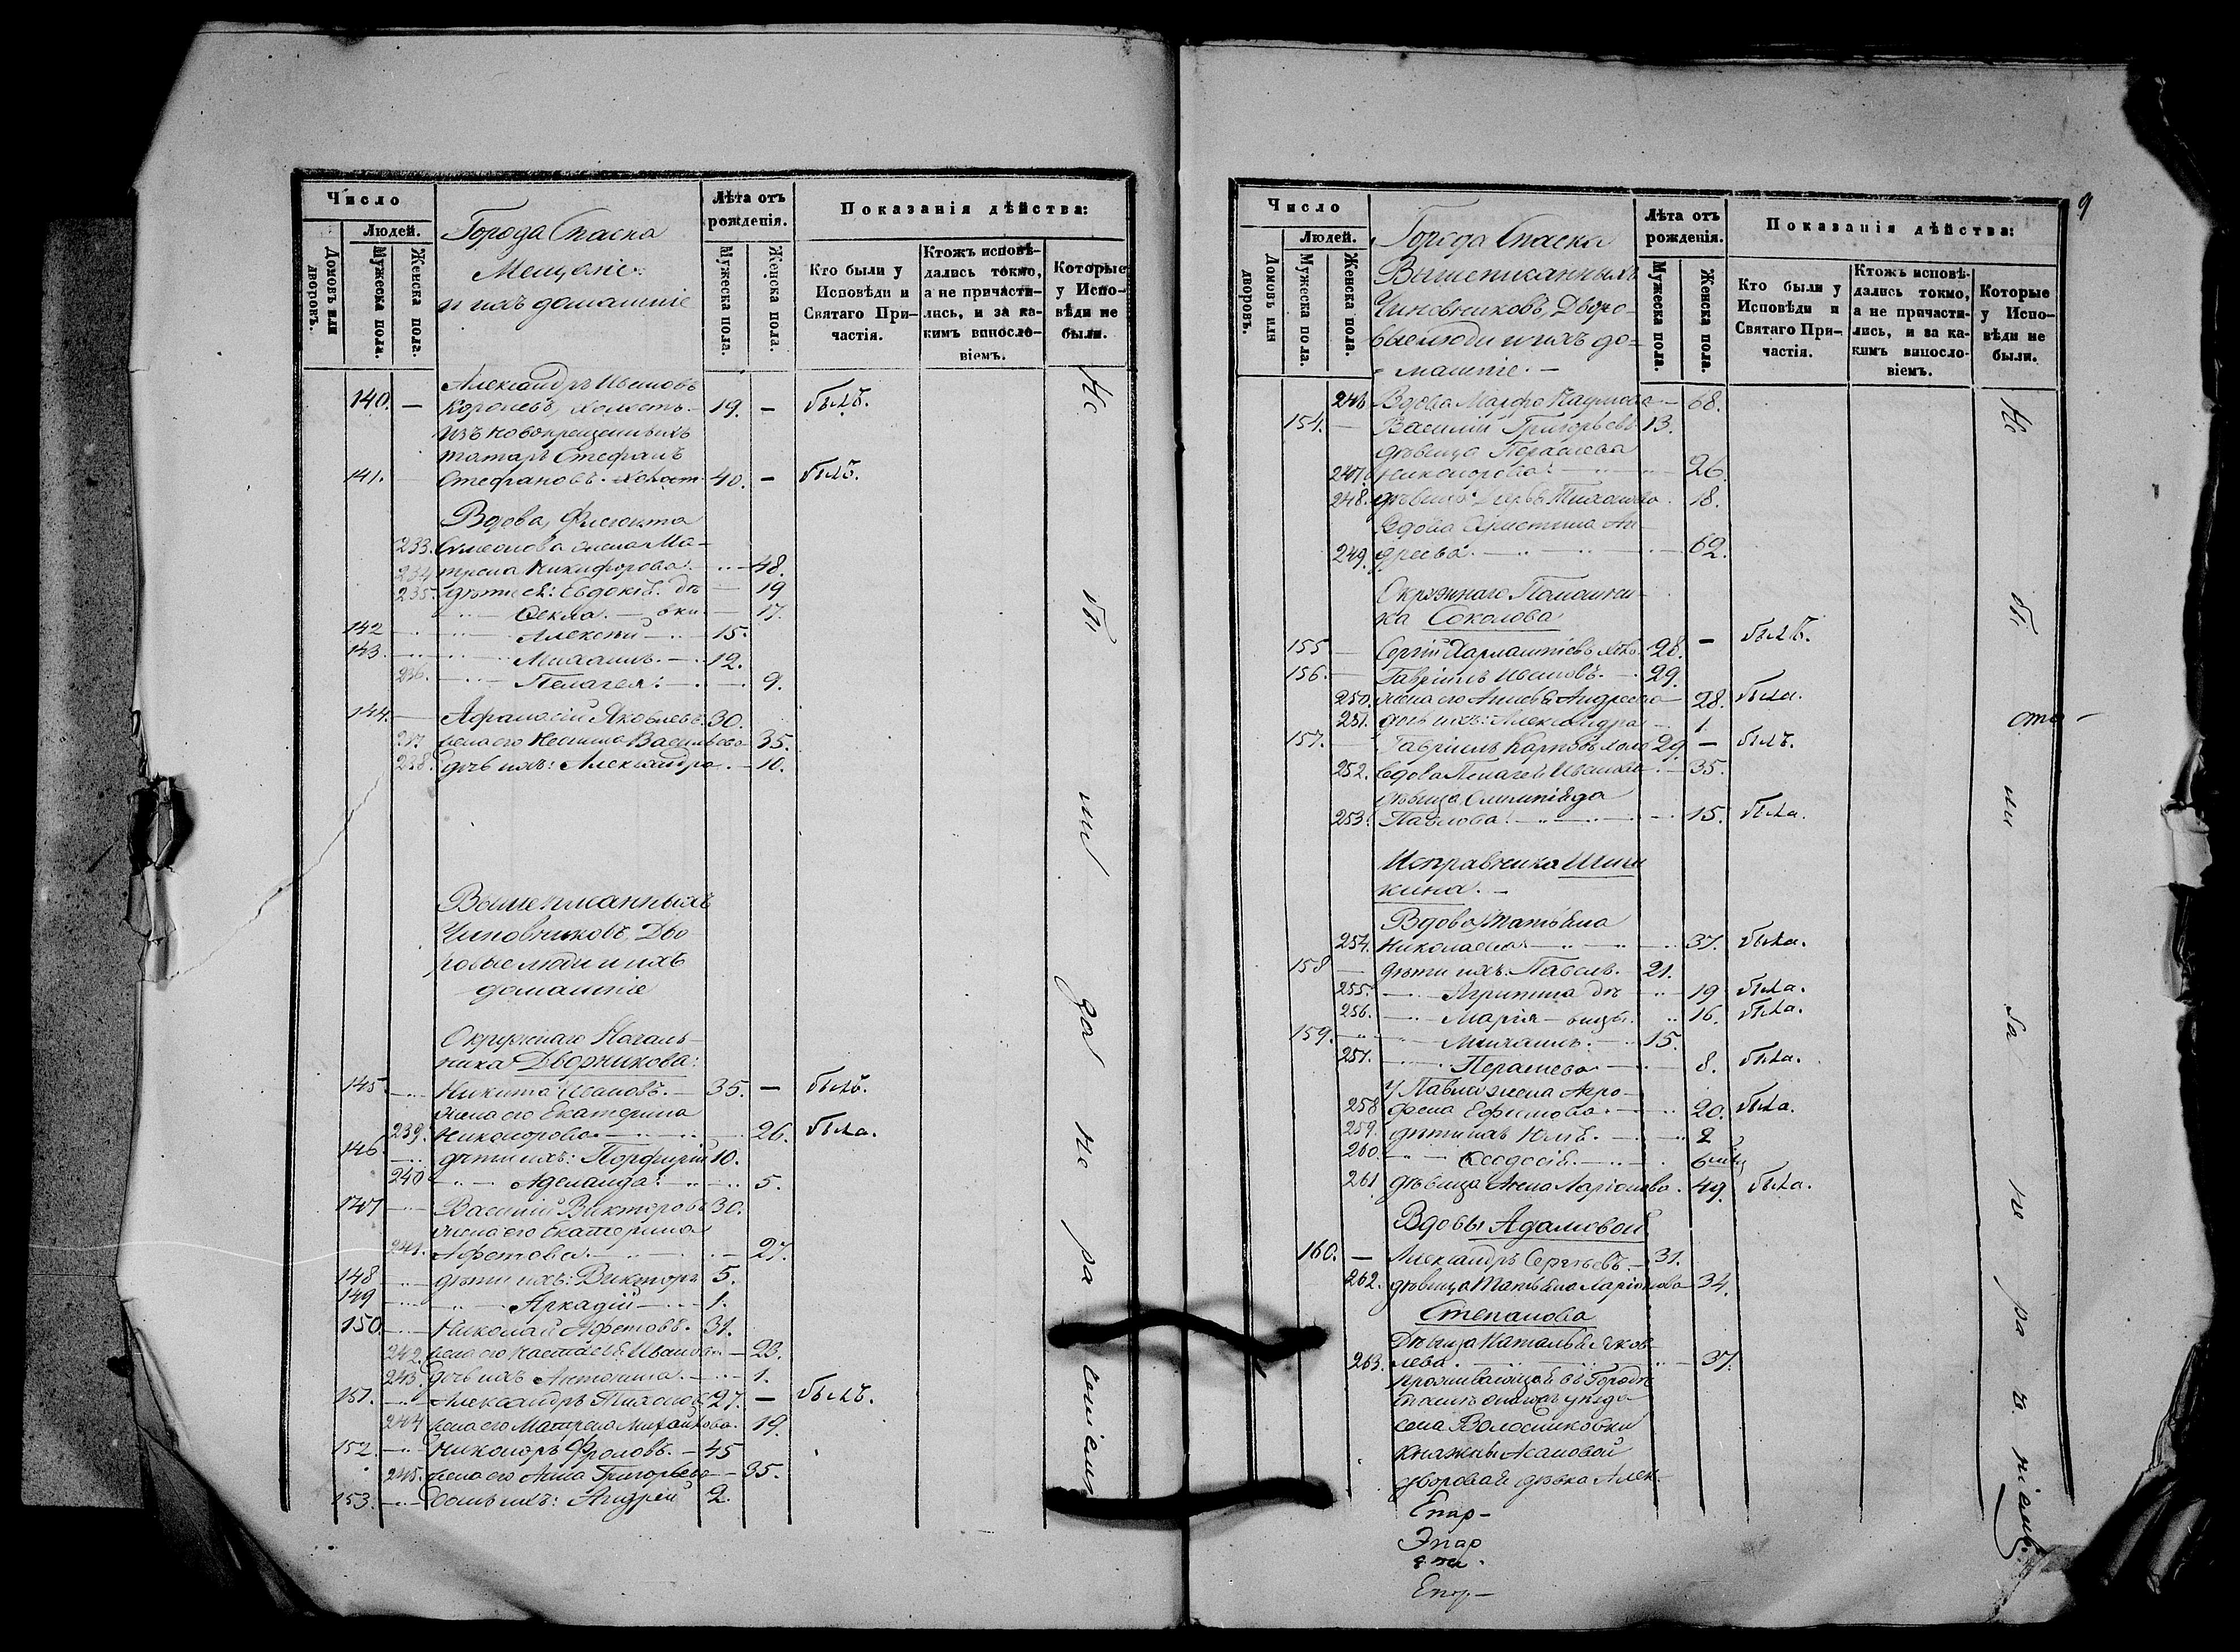 Число
Людей.
Домовъ или дворовъ.
Мужеска пола.
Женска пола.
Города Спаска
Мещане
и ихъ домашніе
Лѣта отъ рожденія.
Мужеска пола.
Женска пола.
Показанія дѣйства:
Кто были у Исповѣди и Святаго Причастія.
Ктожъ исповѣдались токмо, а не причастились, и за какимъ винословіемъ.
Которые у Исповѣди не были.
Александръ Ивановъ
140. — Королевъ, холостъ. 19. — былъ.
Изъ новокрещенныхъ
татаръ Стефанъ
141. — Стефановъ. Холост 40. — былъ.
Вдова, Феклиста
233. Симеонова жена Ма-
234. трена Никифорова. — 48.
235. дѣти ея: Евдокія. дѣ — 19
Ѳекла. — вки — 17.
142 Алексѣй — 15.
143. Михаилъ. — 12.
236. Пелагея: — 9.
144. — Афанасій Яковлевъ 30.
237. жена его Васильева 35.
238. дочь ихъ: Александра. — 10.
Вышеписанныхъ
Чиновниковъ, Дво
ровые люди и ихъ
домашніе
Окружнаго Началь
ника Дворникова:
145 — Никита Ивановъ. — 35. — былъ.
жена его Екатерина
239. Никонорова. — 26. была.
146. дѣти ихъ: Порфирій 10.
240 Аделаида: — 5.
147 — Василій Викторовъ 30.
жена его Екатерина
241. Афетова. — 27.
148 — дѣти ихъ: Викторъ 5.
149 Аркадій — 1.
150. — Николай Афетовъ. 31.
242. жена его Настасья Иванова — 23.
243. дочь ихъ Антонина. — 1.
151. — Александръ Тихоновъ 27. — былъ.
244 жена его Матрена Михайлова. 19.
152. — Никоноръ Фроловъ. — 45
245. жена его Анна Григорьева — 35.
153. — сынъ ихъ: Андрей 2.
Не бы ли за не ра
9
Число
Людей.
Домовъ или дворовъ.
Мужеска пола.
Женска пола.
Города Спаска
Вышеписанныхъ
Чиновниковъ, Дворо-
вые люди и ихъ до=
= машніе. —
Лѣта отъ рожденія.
Мужеска пола.
Женска пола.
Показанія дѣйства:
Кто были у Исповѣди и Святаго Причастія.
Ктожъ исповѣдались токмо, а не причастились, и за какимъ винословіемъ.
Которые у Исповѣди не были.
246 Вдова Марфа Наумова — 68.
154. — Василій Григорьевъ 13.
дѣвица Параскева
247. Никонорова. — 26.
248. дѣвица Тихонова. 18.
Вдова Христина Ан-
249. дреева. — 62.
Окружнаго Помощни-
ка Соколова
155 — Сергій Харлампіевъ 28. — былъ.
156. — Гавріилъ Ивановъ. — 29.
250. жена его Андреева — 28. была.
251. дочь ихъ: Александра — 1.
157. — Гавріилъ Карповъ холо 29. — былъ.
252. вдова Пелагея Иванова. — 35.
дѣвица Олимпіада
253. Павлова. — 15. была.
Исправника Шиш
кина. —
Вдова, Татьяна
254. Николаева — 37. была.
158 — дѣти ихъ. Павелъ. — 21.
255. Агрипина дѣ — 19 была.
256. Марія — вицы. 16. была.
159. Михаилъ. — 15.
257. Параскева — 8. была.
у Павла жена Агро-
258 фена Ефимова. — 20. была.
259. дѣти ихъ Юлія. — 2
260. Ѳеодосія. — 6 мѣс
261. дѣвица Анна Ларіонова. 49. была.
Вдовы Адамовой
160. — Александръ Сергѣевъ. — 31.
262. дѣвица Татьяна Ларіонова 34.
Степанова
Дѣвица Наталья Яков-
263. лева. — 37.
проживающей въ Городѣ
Спаскѣ уѣзда
села
Княжны Асановой
дворовая дѣвка Алек-
Епар-
Эпар
Епар-
Не бы ли за не ра